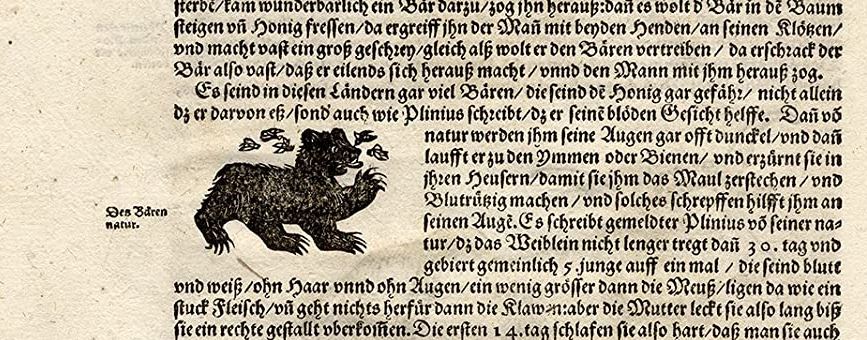 sterbē/kam wunderbarlich ein Bär darzu/zog jhn herauß:dañ es wolt d Bär in dē Baum
steigen vñ Honig fressen/da ergreiff jhn der Mañ mit beyden Henden/an seinen Klötzen/
vnd macht vast ein groß geschrey/gleich alß wolt er den Bären vertreiben / da erschrack der
Bär also vast/daß er eilends sich herauß macht / vnnd den Mann mit jhm herauß zog.
Es seind in diesen Ländern gar viel Bären/die seind dē Honig gar gefähr/ nicht allein
dz er darvon eß/sond' auch wie Plinius schreibt/dz er seinē blöden Gesicht helffe. Dañ vō
natur werden jhm seine Augen gar offt dunckel/vnd dañ
laufft er zu den Ymmen oder Bienen/ vnd erzürnt sie in
jhren Heusern/damit sie jhm das Maul zerstechen / vnd
Blutrützig machen / vnd solches schrepffen hilfft jhm an
seinen Augē. Es schreibt gemeldter Plinius vō seiner na-
tur/dz das Weiblein nicht lenger tregt dañ 30. tag vnd
gebiert gemeinlich 5.junge auff ein mal / die seind blutt
Des Bären
natur.
vnd weiß/ohn Haar vnnd ohn Augen/ein wenig grösser dann die Meuß/ligen da wie ein
stuck Fleisch/vñ geht nichts herfür dann die Klawen:aber die Mutter leckt sie also lang biß
sie ein rechte gestallt vberkom̄en. Die ersten 14.tag schlafen sie also hart/daß man sie auch